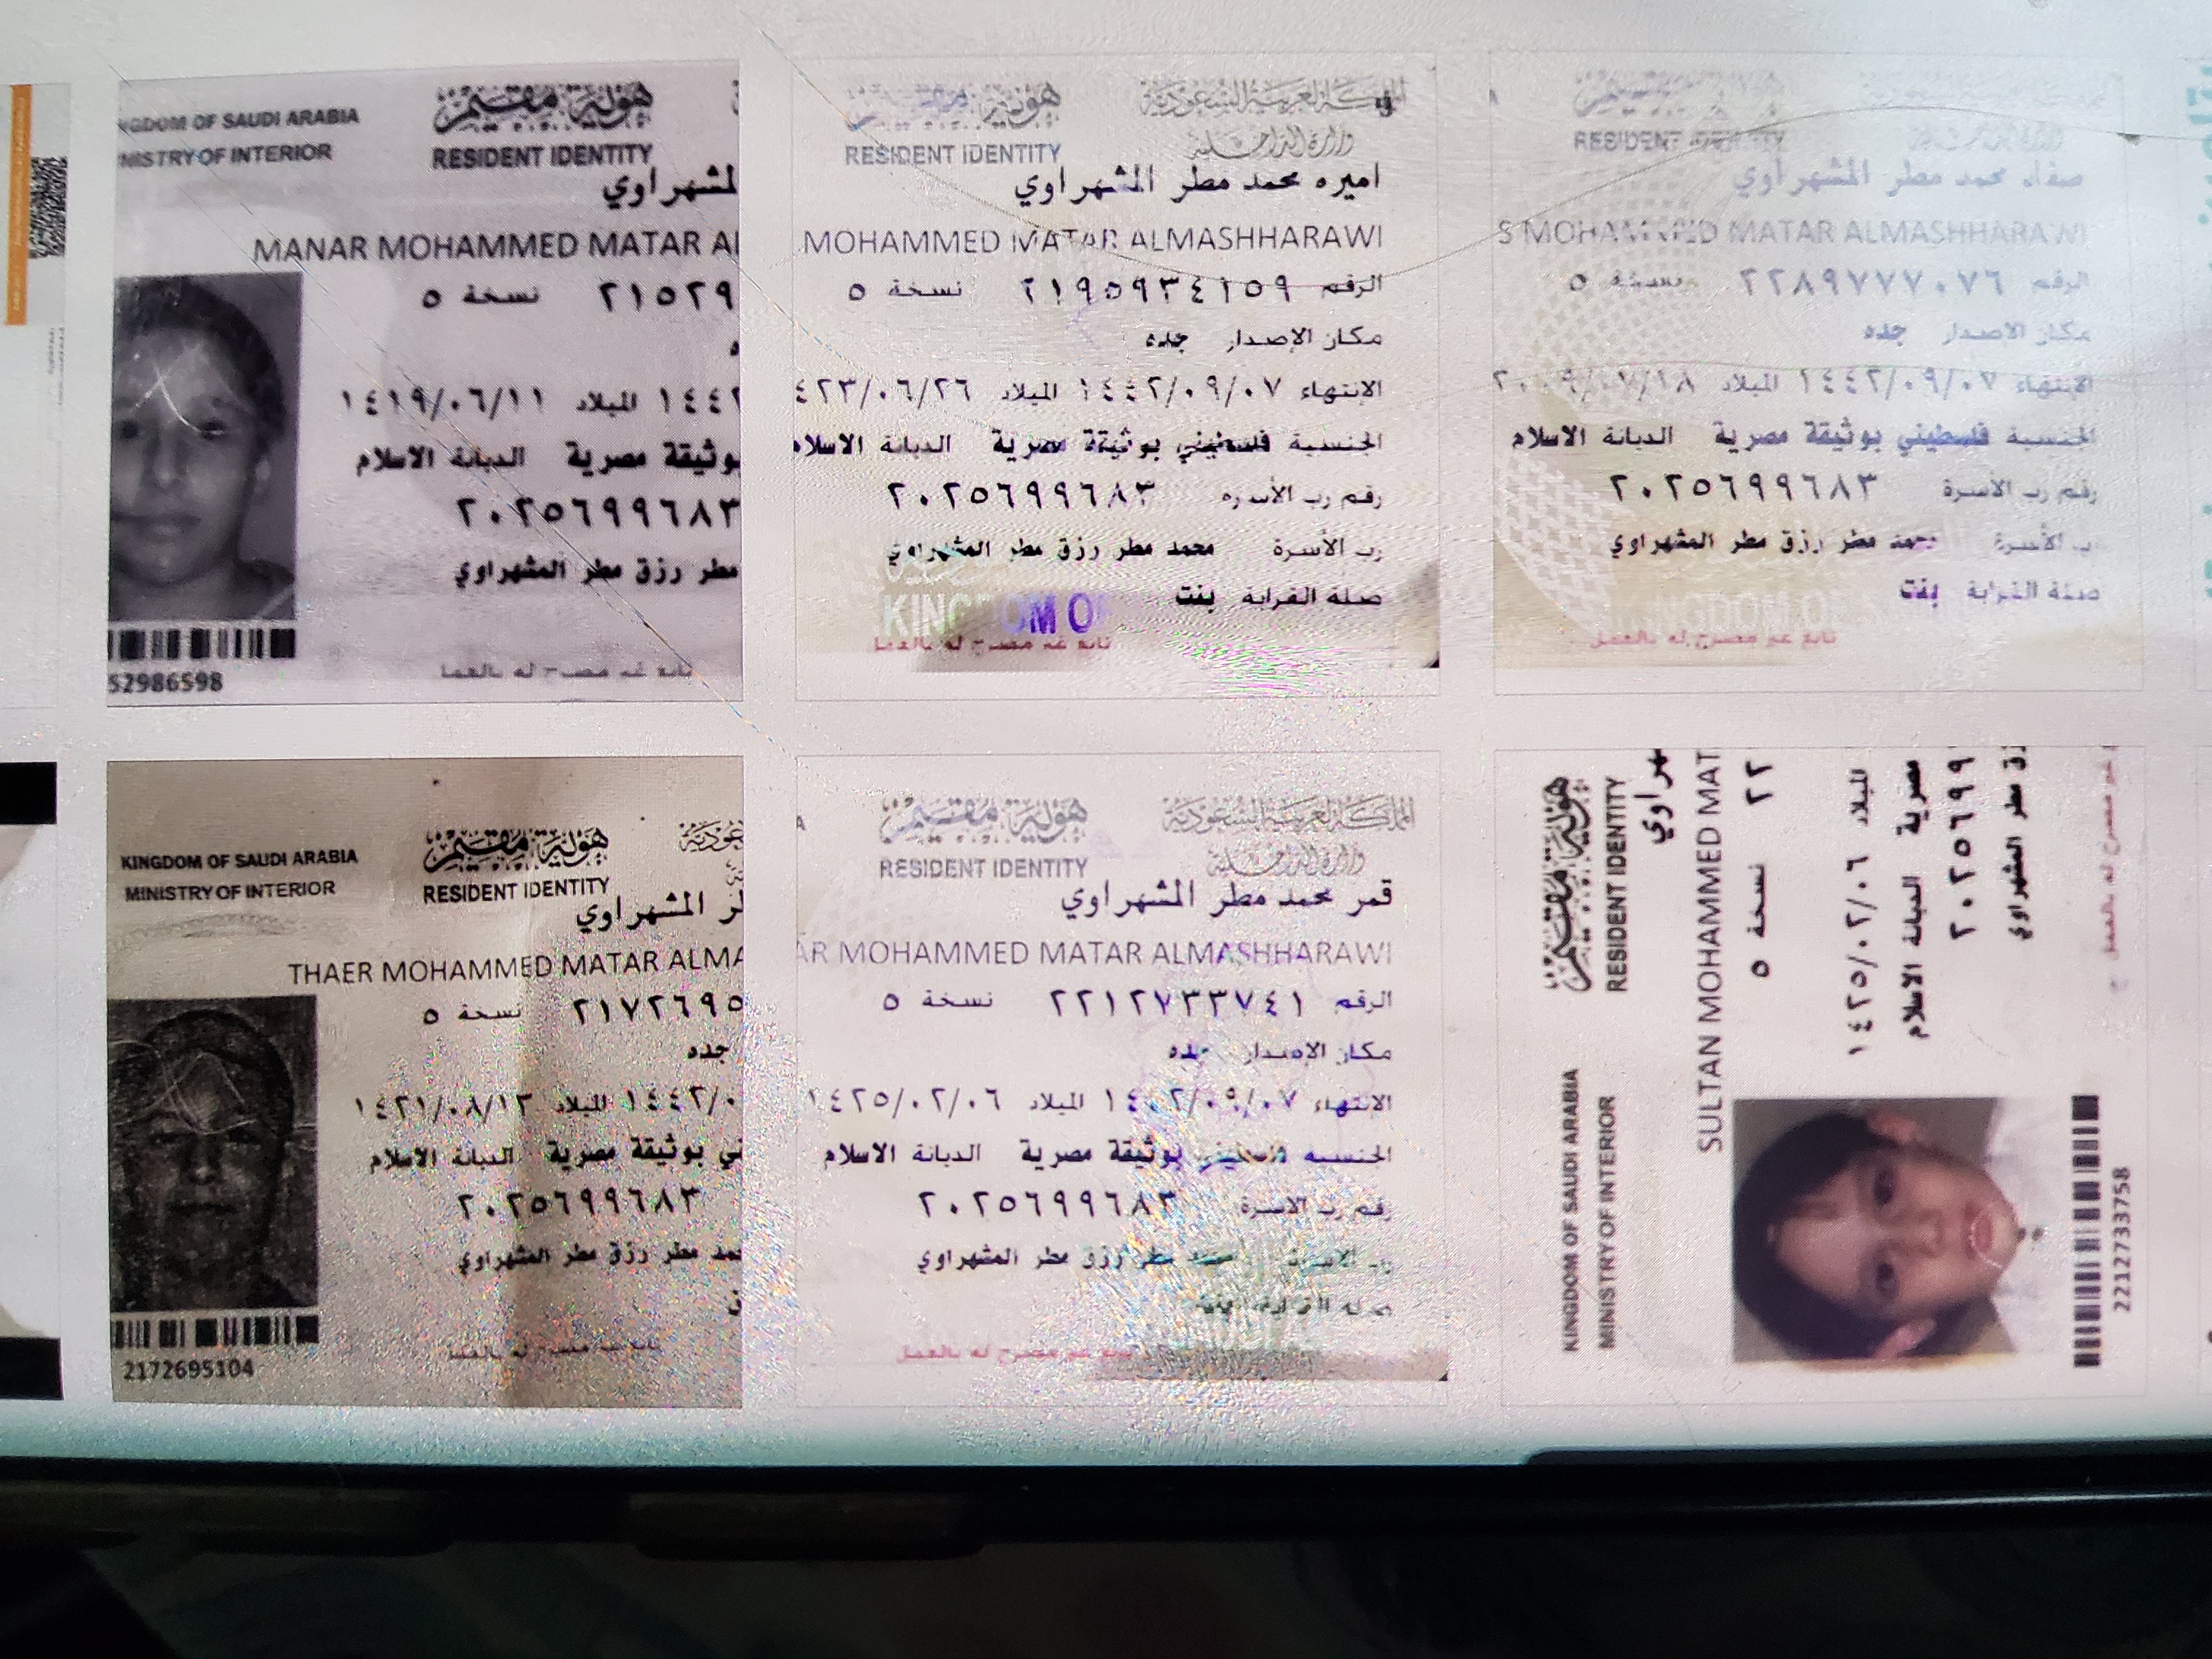 KINGDOM OF SAUDI ARABIA
MINISTRY OF INTERIOR
هوية مقيم
RESIDENT IDENTITY
المشهراوي
MANAR MOHAMMED MATAR Al
٢١٥٢٩ نسخة ٥
١٤٤٢ الميلاد ١٤١٩/٠٦/١١
بوثيقة مصرية الديانة الاسلام
٢٠٢٥٦٩٩٦٨٣
مطر رزق مطر المشهراوي
52986598
تابع غير مصرح له بالعمل
هوية مقيم
المملكة العربية السعودية
RESIDENT IDENTITY
وزارة الداخلية
اميره محمد مطر المشهراوي
MOHAMMED MATAR ALMASHHARAWI
الرقم ٢١٩٥٩٣٤١٥٩ نسخة ٥
مكان الإصدار جده
الانتهاء ١٤٤٢/٠٩/٠٧ الميلاد ٤٢٣/٠٦/٢٦
الجنسية فلسطيني بوثيقة مصرية الديانة الاسلام
رقم رب الأسرة ٢٠٢٥٦٩٩٦٨٣
رب الأسرة محمد مطر رزق مطر المشهراوي
صلة القرابة بنت
KINGDOM OF
تابع غير مصرح له بالعمل
RESIDENT IDENTITY
صفاء محمد مطر المشهراوي
S MOHAMMED MATAR ALMASHHARAWI
الرقم ٢٢٨٩٧٧٧٠٧٦ نسخة ٥
مكان الاصدار جده
الانتهاء ١٤٤٢/٠٩/٠٧ الميلاد
الجنسية فلسطيني بوثيقة مصرية الديانة الاسلام
رقم رب الأسرة ٢٠٢٥٦٩٩٦٨٣
رب الأسرة محمد مطر رزق مطر المشهراوي
صلة القرابة بنت
تابع غير مصرح له بالعمل
KINGDOM OF SAUDI ARABIA
MINISTRY OF INTERIOR
هوية مقيم
RESIDENT IDENTITY
المشهراوي
THAER MOHAMMED MATAR ALMA
٢١٧٢٦٩٥ نسخة ٥
جده
١٤٤٢/٠ الميلاد ١٤٢١/٠٨/١٢
بوثيقة مصرية الديانة الاسلام
٢٠٢٥٦٩٩٦٨٣
مطر رزق مطر المشهراوي
2172695104
هوية مقيم
المملكة العربية السعودية
RESIDENT IDENTITY
وزارة الداخلية
قمر محمد مطر المشهراوي
AR MOHAMMED MATAR ALMASHHARAWI
الرقم ٢٢١٢٧٣٣٧٤١ نسخة ٥
مكان الإصدار جده
الانتهاء ١٤٤٢/٠٩/٠٧ الميلاد ١٤٢٥/٠٢/٠٦
الجنسية فلسطيني بوثيقة مصرية الديانة الاسلام
رقم رب الاسرة ٢٠٢٥٦٩٩٦٨٣
رب الاسرة محمد مطر رزق مطر المشهراوي
تابع غير مصرح له بالعمل
KINGDOM OF SAUDI ARABIA
MINISTRY OF INTERIOR
هوية مقيم
RESIDENT IDENTITY
SULTAN MOHAMMED MAT
٢٢ نسخة ٥
الميلاد ١٤٢٥/٠٢/٠٦
مصرية الديانة الاسلام
٢٠٢٥٦٩٩
مطر المشهراوي
غير مصرح له بالعمل
2212733758